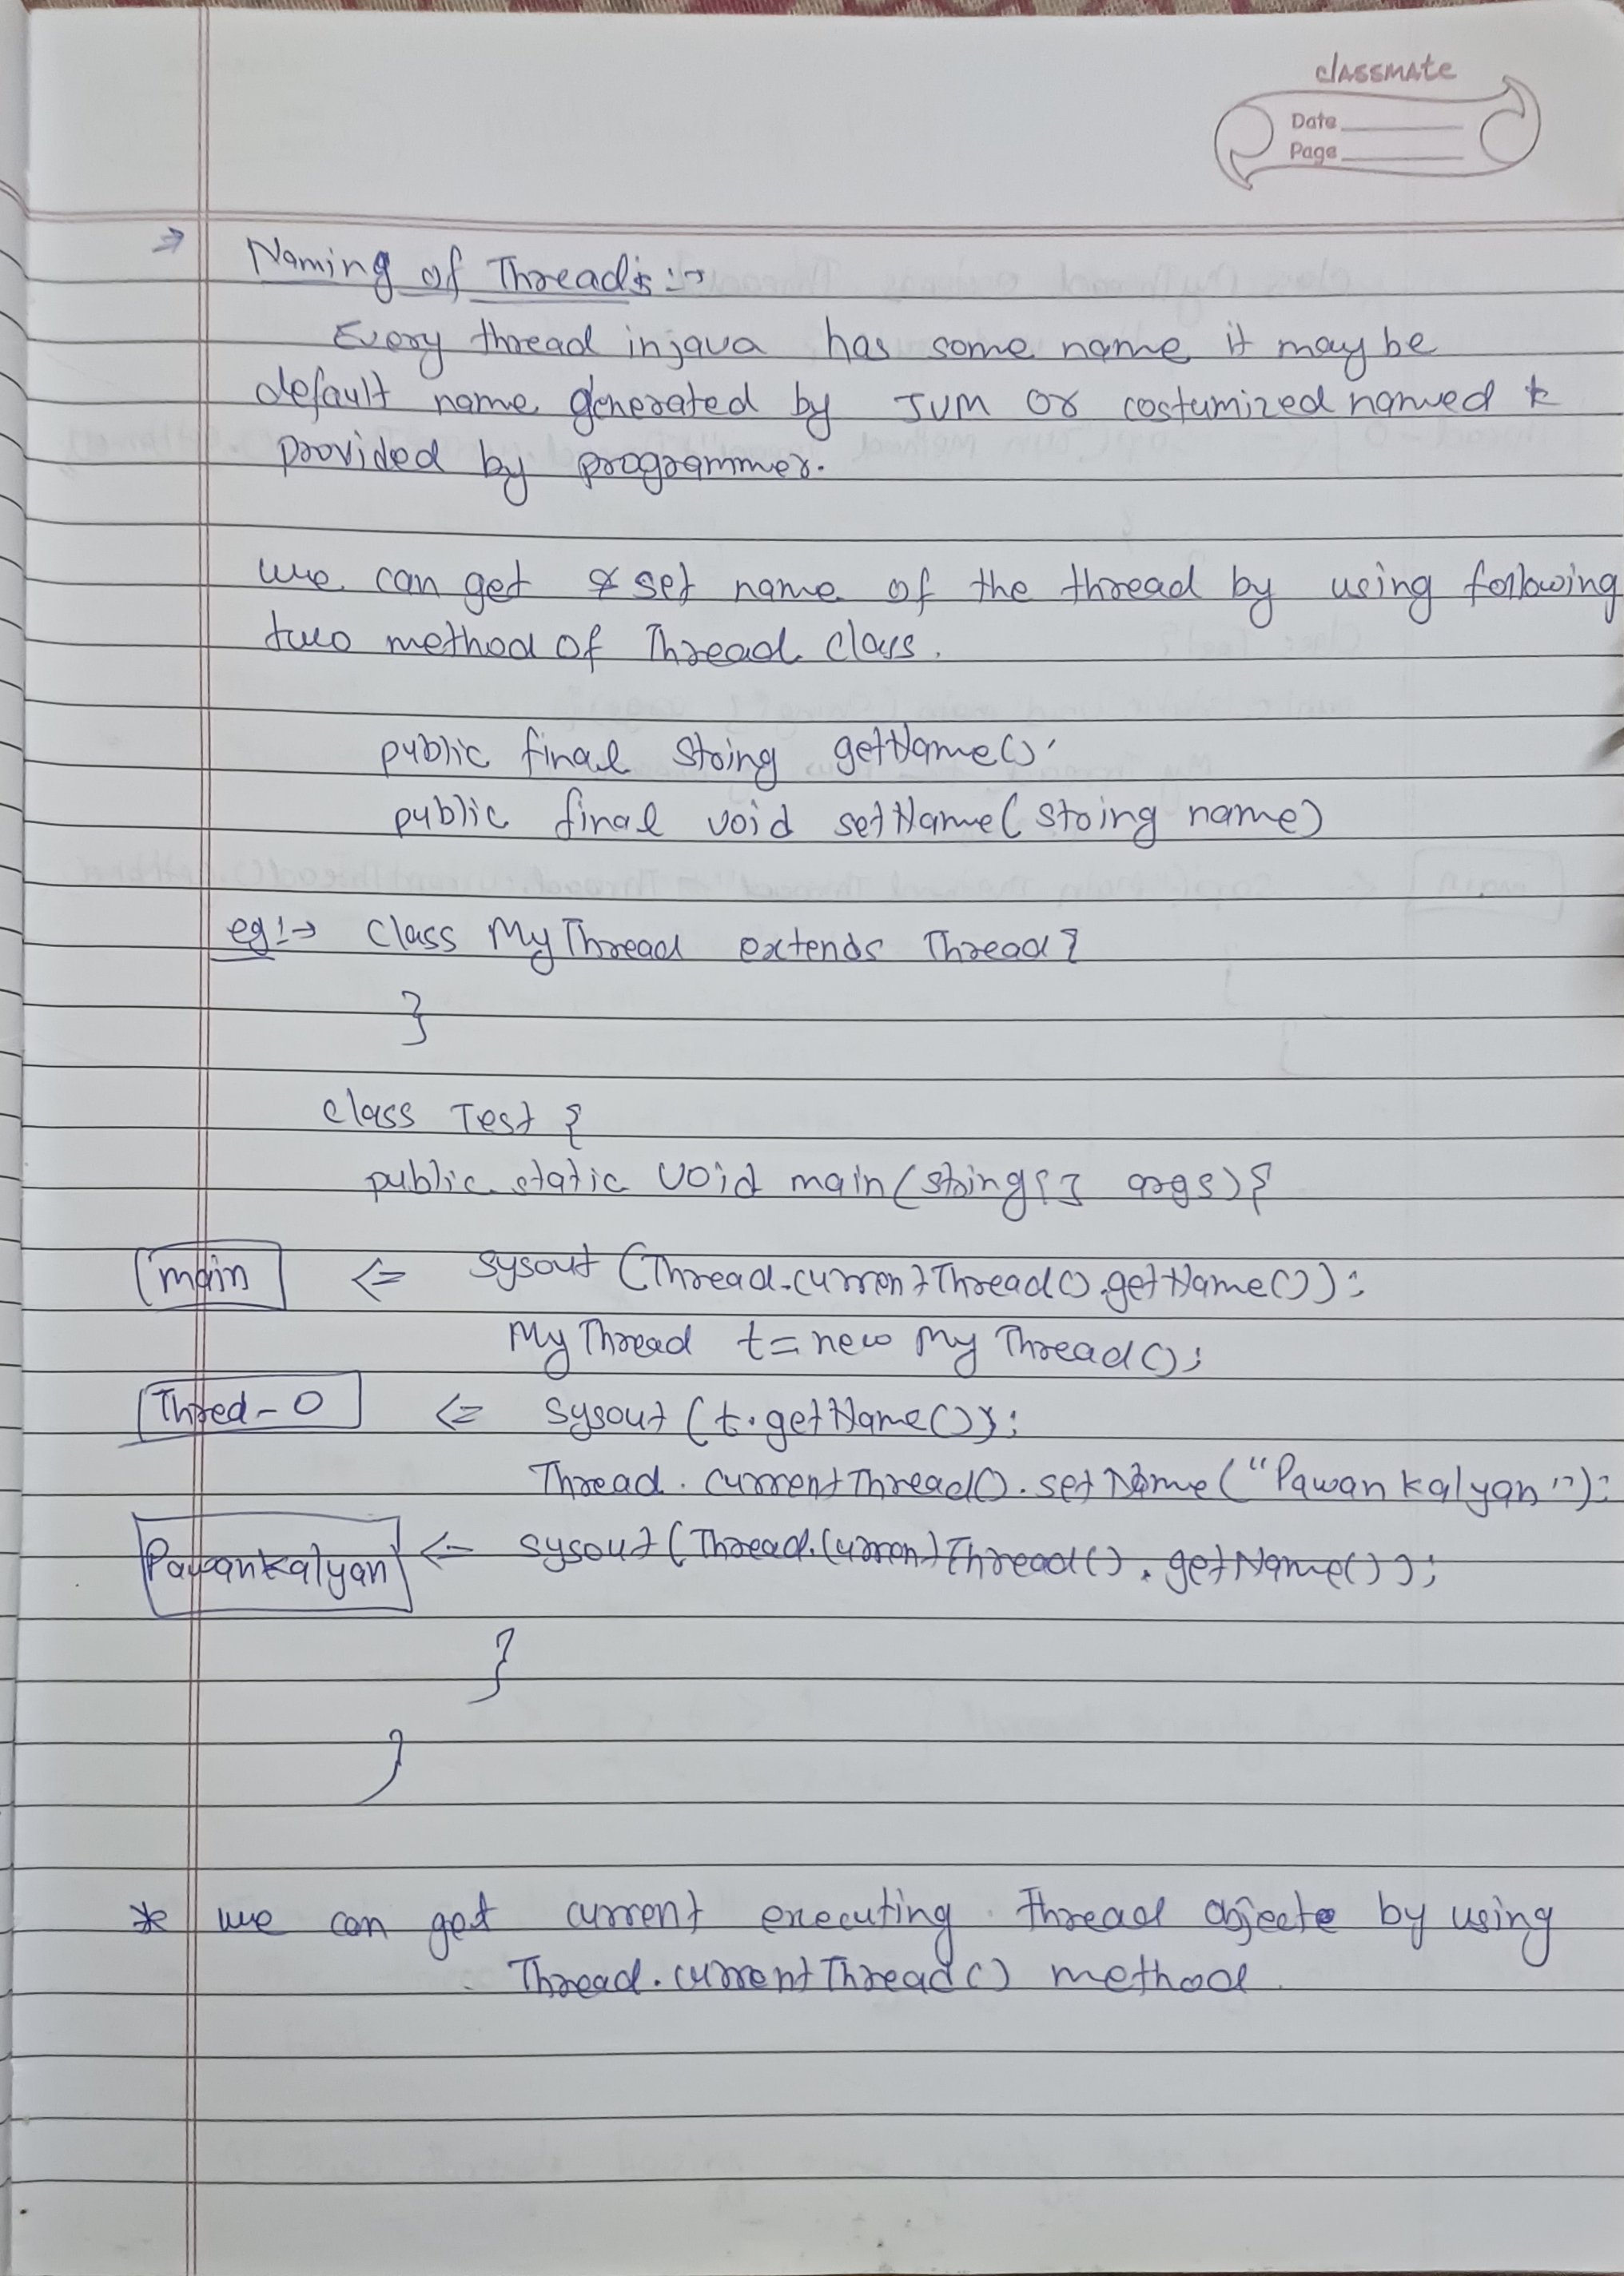 classmate
Date
Page
⇒ Naming of Threads :→
Every thread in java has some name it may be
default name generated by JVM or costumized named
provided by programmer.
we can get & set name of the thread by using following
two method of Thread class.
public final String getName()
public final void setName(String name)
eg:→ class MyThread extends Thread{
}
class Test {
public static void main(String[] args){
main <= sysout(Thread.currentThread().getName());
MyThread t = new MyThread();
Thred-0 <= sysout(t.getName());
Thread.currentThread().setName("Pawankalyan");
Pawankalyan <= sysout(Thread.currentThread().getName());
}
}
* we can get current executing thread objecte by using
Thread.currentThread() method.